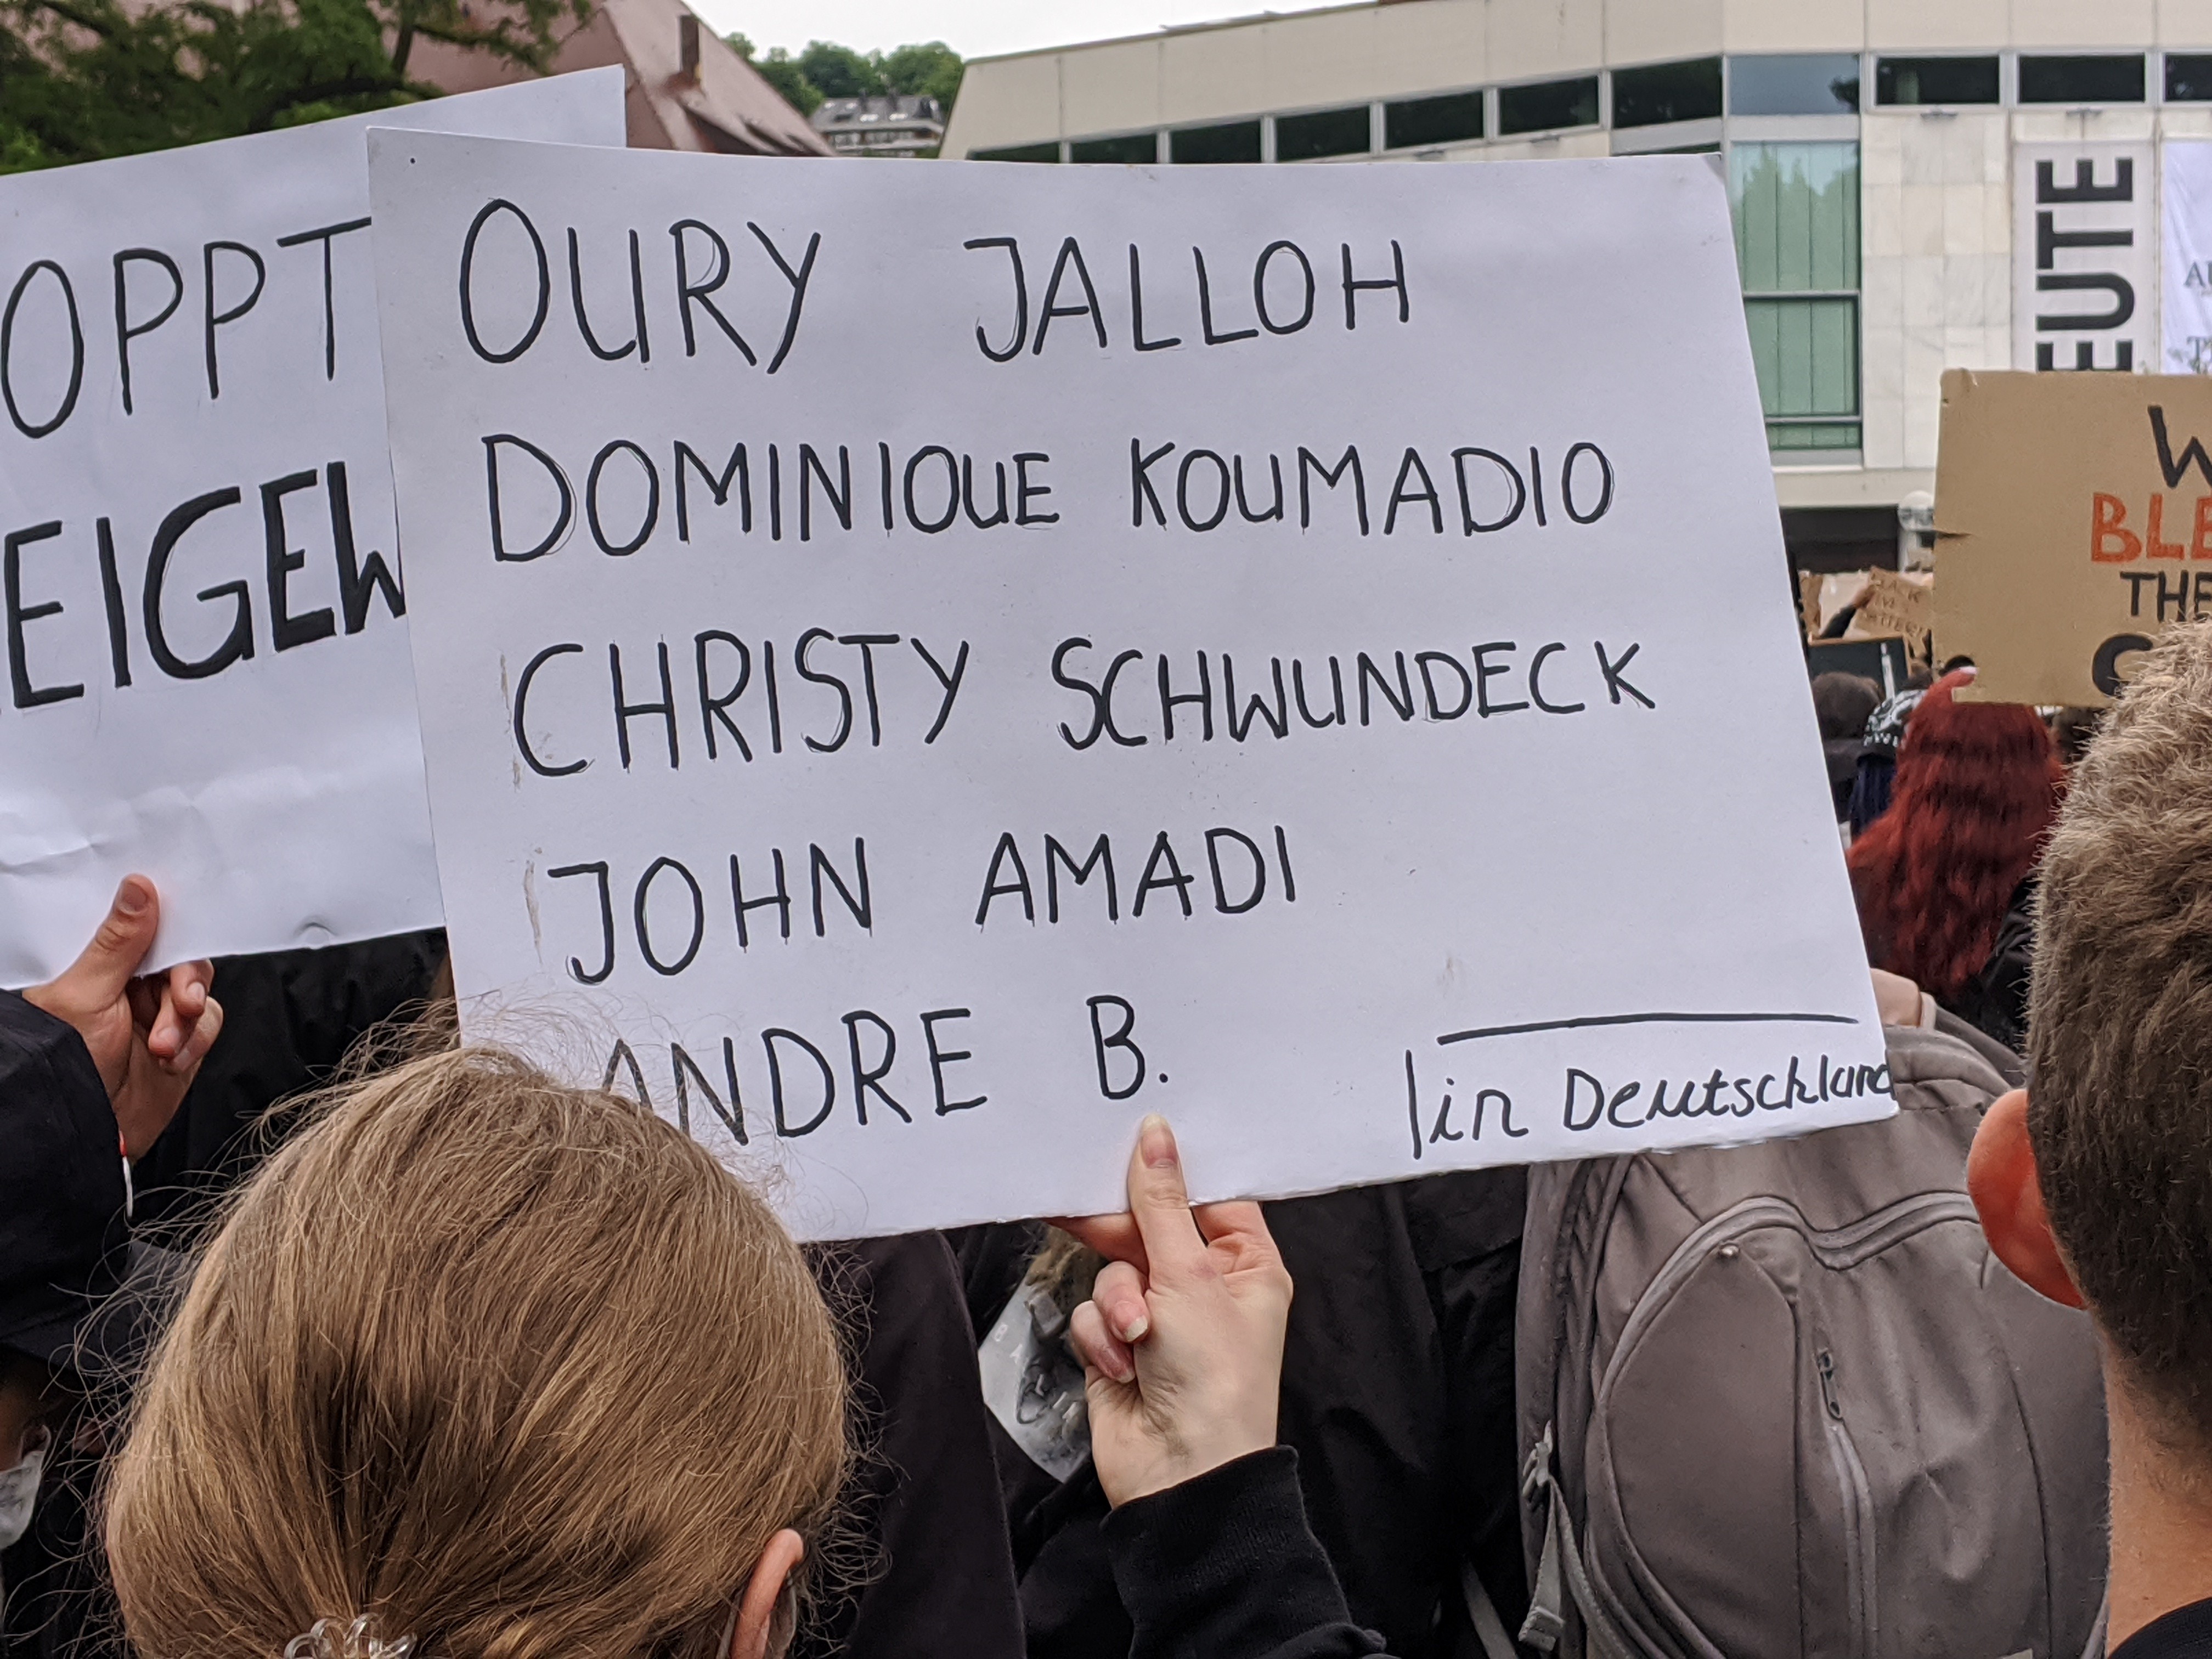 OPPT
EIGEW
OURY JALLOH
DOMINIOUE KOUMADIO
CHRISTY SCHWUNDECK
JOHN AMADI
ANDRE B.
in Deutschland
EUTE
W
BLE
THE